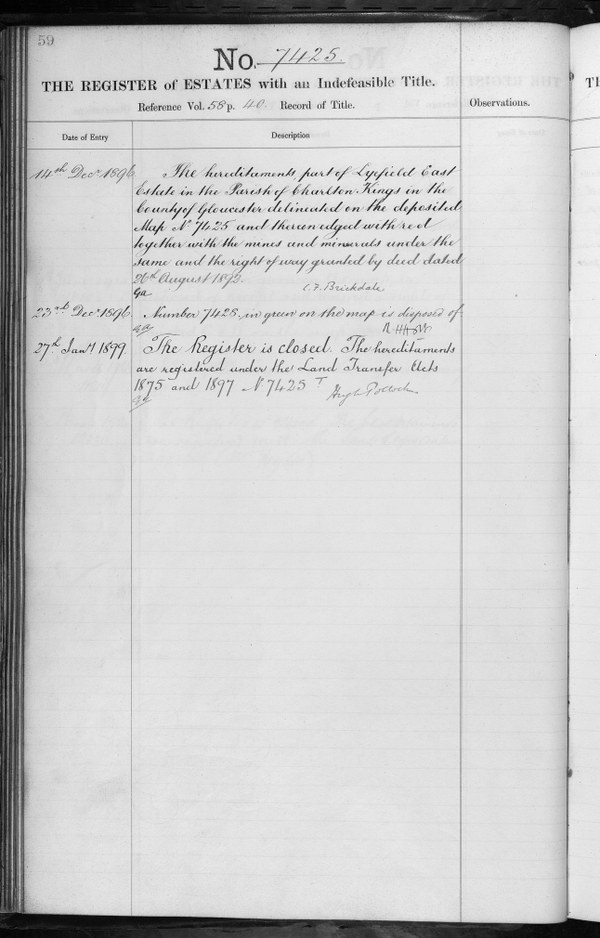 59
No. 7425.
THE REGISTER of ESTATES with an Indefeasible Title.
Reference Vol. 58 p. 40. Record of Title.
Observations.
Date of Entry
Description
14th Decr 1896 The hereditaments part of Lyefield East
Estate in the Parish of Charlton Kings in the
County of Gloucester delineated on the deposited
Map No 7425 and thereon edged with red
together with the mines and minerals under the
same and the right of way granted by deed dated
26th August 1892.
C. F. Brickdale
23rd Decr 1896 Number 7428. in green on the map is disposed of
27th Jany 1899. The Register is closed. The hereditaments
are registered under the Land Transfer Acts
1875 and 1897 No 7425 T
Hugh Pollock